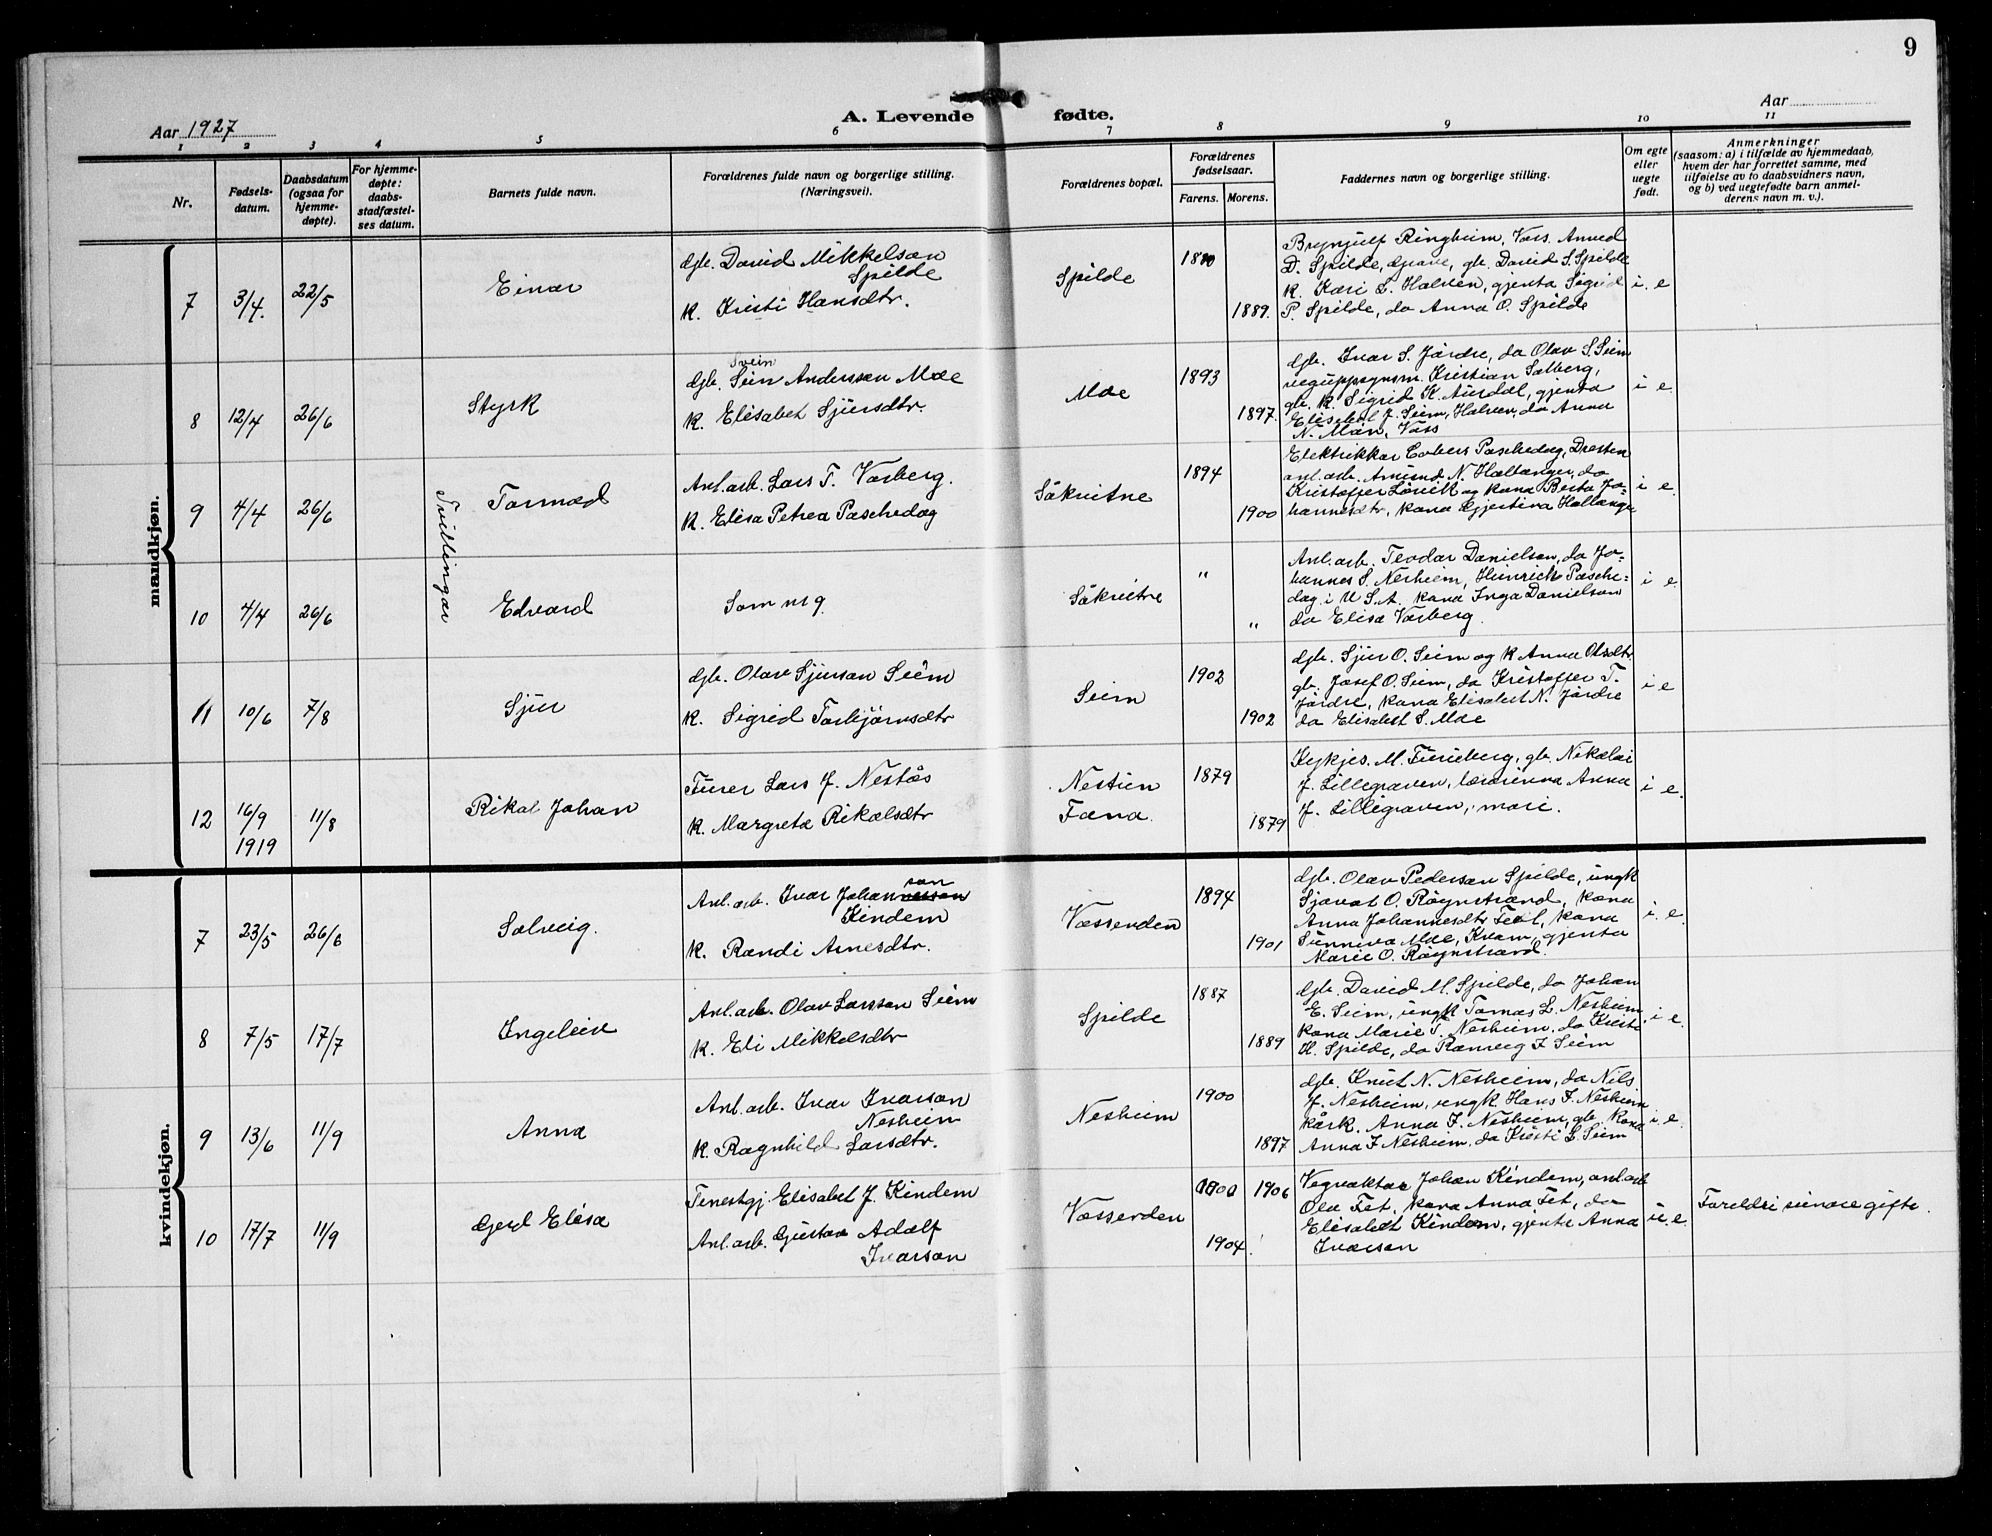 9
Aar 1927
A. Levende fødte.
Aar
1 2 3 4 5 6 7 8 9 10 11
Nr.
Fødsels-
datum.
Daabsdatum
(ogsaa for
hjemme-
døpte).
For hjemme-
døpte:
daabs-
stadfæstel-
ses datum.
Barnets fulde navn.
Forældrenes fulde navn og borgerlige stilling.
(Næringsvei).
Forældrenes bopæl.
Forældrenes
fødselsaar.
Farens. Morens.
Faddernes navn og borgerlige stilling.
Om egte
eller
uegte
født.
Anmerkninger
(saasom: a) i tilfælde av hjemmedaab,
hvem der har forrettet samme, med
tilføielse av to daabsvidners navn,
og b) ved uegtefødte barn anmel-
derens navn m. v.).
mandkjøn.
7 3/4. 22/5 Einar
gb. David Mikkelson
Spilde
k. Kristi Hansdtr.
Spilde
1889.
Brynjulf Ringheim, Voss. Anved
D. Spilde, Grave, gb. David S. Spilde
k. Kari L. Halven, gjenta Sigrid
P. Spilde, do Anna O. Spilde
i. e
8 12/4 26/6 Styrk
Svein
gb. Sein Anderssen Moe
k. Elisabet Sjursdtr.
Moe
1893
1897.
gb. Ivar S. Jårdre, da Olav S. Seim
veguppsynsm. Kristian Salberg,
gb. k. Sigrid K. Aurdal, gjenta
Elisabet J. Seim, Halven, do Anna
N. Møn, Voss
i e
9 4/4 26/6 Tvillingar Tormod
Anl. arb. Lars T. Varberg.
k. Elisa Petrea Paschedag
Såkvitne
1894
1900
Elektrikkar Cobers Paschedag, Dresten
anl. arb. Amund N. Haltanger, do
Kristoffer Lövik og kona Berta Jo-
hannesdtr, kona Gjertina Hallanger
i e.
10 4/4 26/6 Edvard
Som nr 9.
Såkvitne
"
"
Anl. arb. Teodor Danielson, do Jo-
hannes S. Nesheim, Heinrich Pasche-
dag i U S. A. kona Inga Danielson
do Elisa Varberg.
i e
11 10/6 7/8 Sjur
gb. Olav Sjurson Seim
k. Sigrid Torbjørnsdtr
Seim
1902
1902
gb. Sjur O. Seim og k Anna Olsdtr.
gb. Josef O. Seim, do Kristoffer T.
Jårdre, kona Elisabet N. Jårdre
do Elisabet S. Moe
i e
12 16/9 1919 11/8 Rikal Johan
Furer Lars J. Nestås
k. Margreta Rikalsdtr
Nestun
Fana.
1879
1879
Kyrkjes. M. Furuberg, gb. Nikolai
J. Lillegraven, lærarinna Anna
J. Lillegraven, mori.
i e.
kvindekjøn.
7 23/5 26/6 Solveig.
Anl. arb. Ivar Johannesson
son
Kindem
k. Randi Arnesdtr.
Vassenden
1894
1901
gb. Olav Pederson Spilde, ungk
Sjovat O. Røynstrand, kona
Anna Johannesdtr Teil, kona
Sunniva Moe, Kvam, gjenta
Marie O. Røynstrand.
i. e.
8 7/5 17/7 Ingeleiv
Anl. arb. Olav Larsson Seim
k. Eli Mikkelsdtr
Spilde
1887
1889
gb. David M. Spilde, do Johan
E. Seim, ungk Tomas L. Nesheim
kona Marie T. Nesheim, do Kristi
H. Spilde, do Ranveig I Seim
i. e.
9 13/6 11/9 Anna
Anl. arb. Ivar Ivarson
Nesheim
k. Ragnhild Larsdtr.
Nesheim
1900
1897
gb. Knut N. Nesheim, do Nils
J. Nesheim, ungk Hans I. Nesheim
kårk. Anna I. Nesheim, gb. kona
Anna I Nesheim, do Kristi L. Seim
i. e.
10 17/7 11/9 Gerd Elisa
Tenestgj. Elisabet J. Kindem
Anl. arb. Gustav Adolf
Ivarson
Vassenden
1906
1904
Vegvaktar Johan Kindem, anl arb
Ola Fet, kona Anna Fet, do
Elisabet Kindem, gjenta Anna
Ivarson
u. e.
Foreldri seinare gifte.